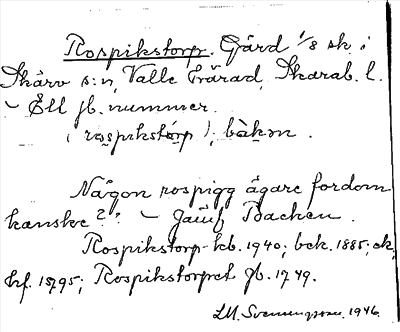 Rospikstorp. Gård 1/8 sk i
Skärv s:n, Valle härad, Skarab. l.
~ Ett jb. nummer.
(rospikstårp); bàkən.
Någon rospigg ägare fordom
kanske? ~ Jämf Backen.
Rospikstorp kb. 1940; bek. 1885; ek.
kf. 1795; Rospikstorpet gb. 1749.
LM. Svenungsson. 1946.